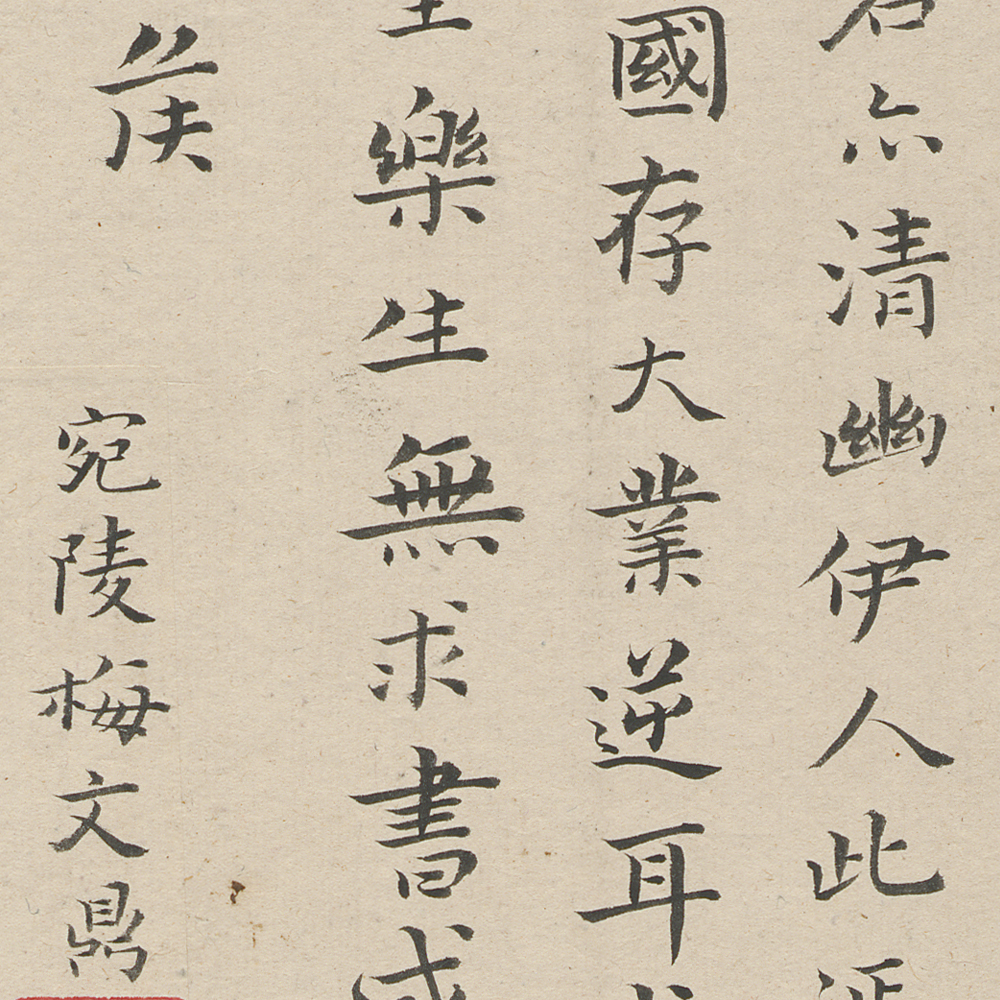 亦清幽伊人此
國存大業逆耳
樂生無求書
宛陵梅文鼎